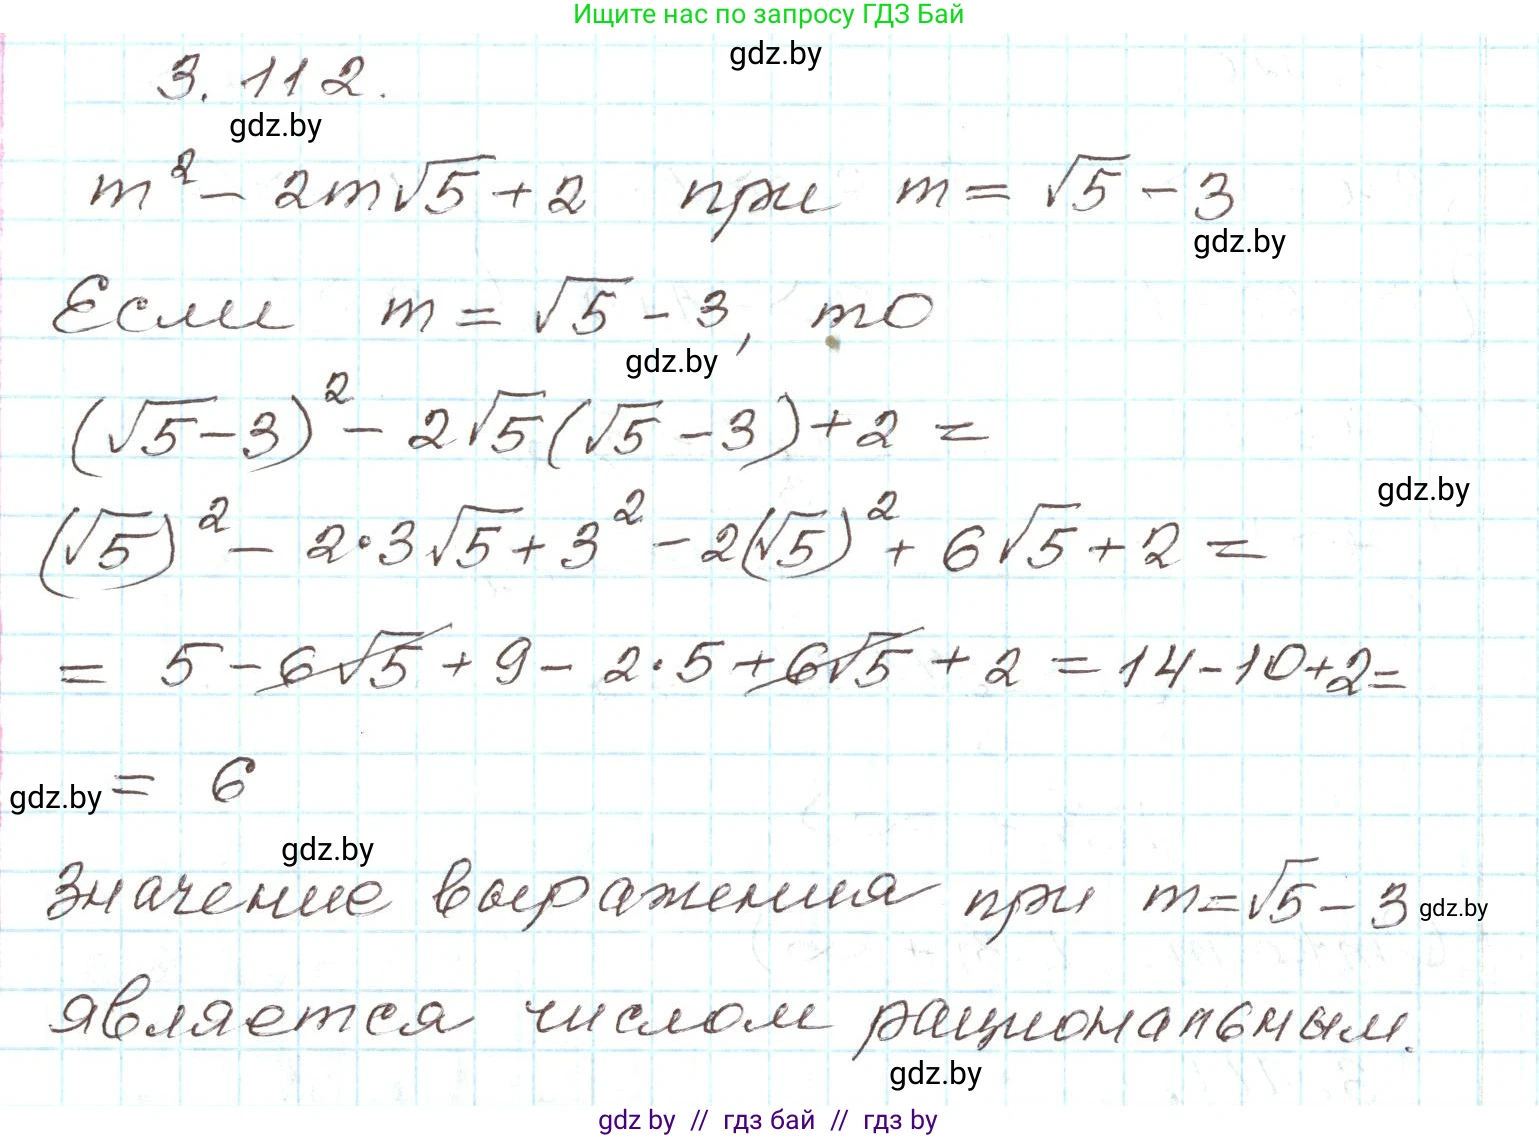 Ищите нас по запросу ГДЗ Бай
gdz.by
3.112.
gdz.by
m² - 2m√5 + 2 при m = √5 - 3
gdz.by
Если m = √5 - 3, то
gdz.by
(√5 - 3)² - 2√5(√5 - 3) + 2 =
gdz.by
(√5)² - 2·3√5 + 3² - 2(√5)² + 6√5 + 2 =
= 5 - 6√5 + 9 - 2·5 + 6√5 + 2 = 14 - 10 + 2 =
gdz.by = 6
gdz.by
Значение выражения при m = √5 - 3 gdz.by
является числом рациональным.
gdz.by
gdz by // гдз бай // гдз by